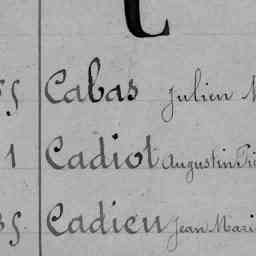 Cabas Julien
1 Cadiot Augustin
Cadieu Jean